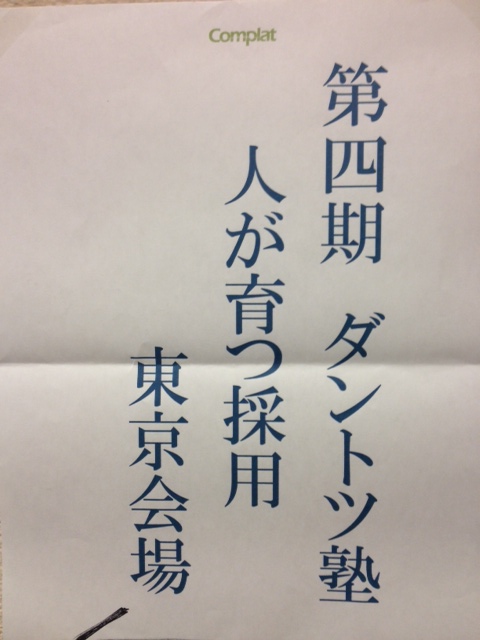 Complat
第四期 ダントツ塾
人が育つ採用
東京会場